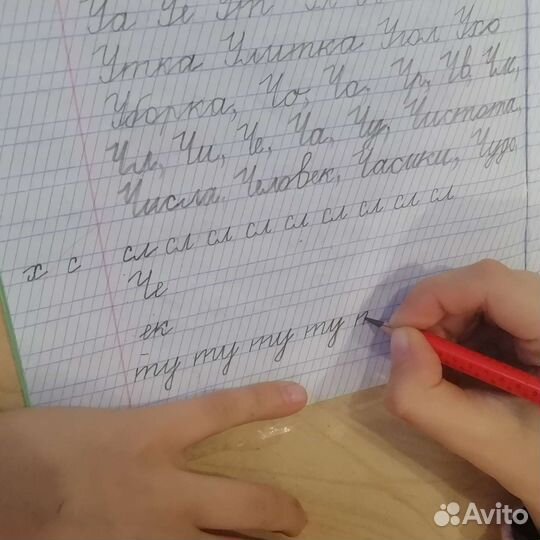 Уа Уе Ут Ул
Утка Улитка Угол Ухо
Уборка, Чо, Ча, Чр, Чв, Чм,
Чл, Чи, Че, Ча, Чу, Чистота,
Числа, Человек, Часики, Чудо
х с сл сл сл сл сл сл сл сл сл
Че
ек
ту ту ту ту т
Avito